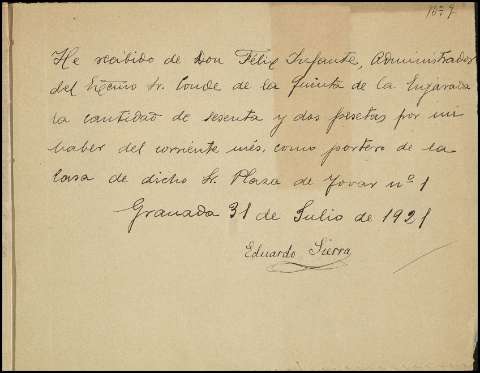 Nº 9.
He recibido de Don Félix Infante, Administrador
del Excmo Sr. Conde de la Quinta de la Enjarada
la cantidad de sesenta y dos pesetas por mi
haber del corriente més, como portero de la
Casa de dicho Sr. Plaza de Tovar nº 1
Granada 31 de Julio de 1921
Eduardo Sierra